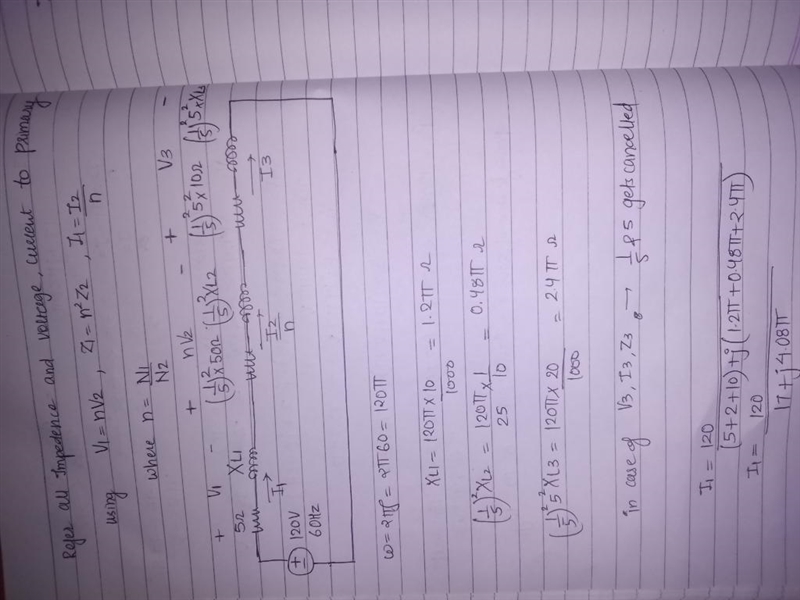 Refer all Impedence and voltage, current to primary
using V1 = nV2, Z1 = n²Z2, I1 = I2/n
where n = N1/N2
+ V1 - + nV2 - + V3 -
5Ω XL1 (1/5)² x 50Ω (1/5)² XL2 (1/5)² 5² x 10Ω (1/5)² 5² x XL3
120V
60Hz
I1 I2/n I3
ω = 2πf = 2π60 = 120π
XL1 = 120π x 10/1000 = 1.2π Ω
(1/5)² XL2 = 120π/25 x 1/10 = 0.48π Ω
(1/5)² 5² XL3 = 120π x 20/1000 = 2.4π Ω
in case of V3, I3, Z3 → 1/5 & 5 gets cancelled
I1 = 120/((5+2+10)+j(1.2π+0.48π+2.4π))
I1 = 120/(17+j4.08π)